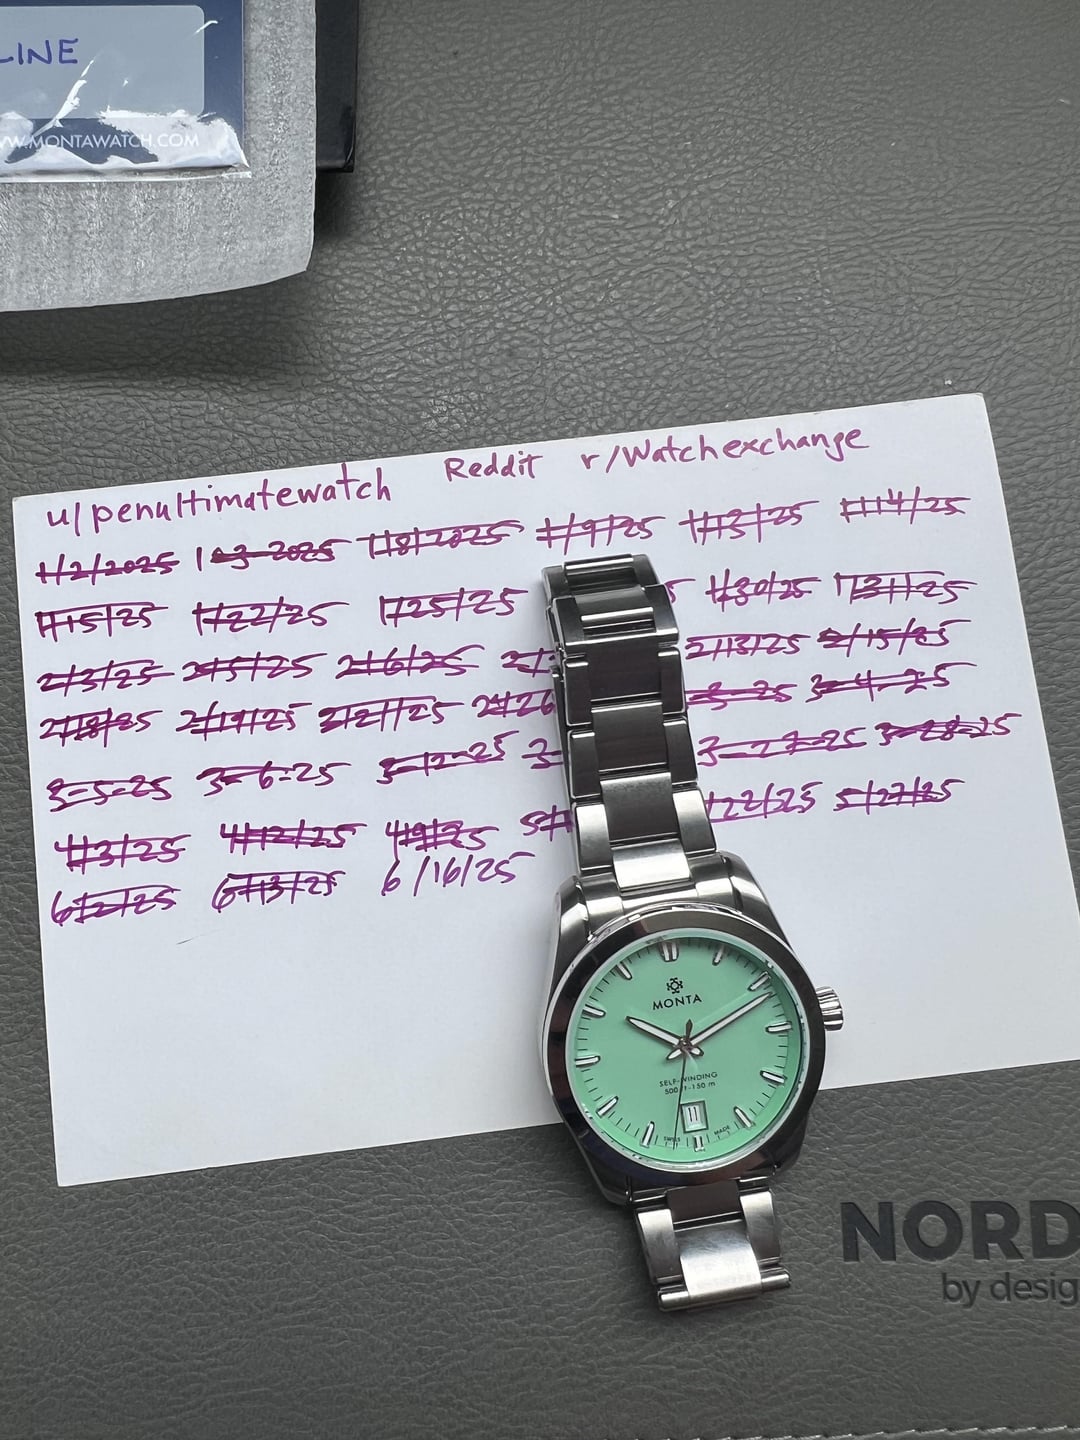 LINE
WWW.MONTAWATCH.COM
u/penultimatewatch Reddit r/Watchexchange
1/2/2025 1-3-2025 1/8/2025 1/9/25 1/13/25 1/14/25
1/15/25 1/22/25 1/25/25 5 1/30/25 1/31/25
2/3/25 2/5/25 2/6/25 2/ 2/13/25 2/15/25
2/18/25 2/19/25 2/21/25 2/26 3-25 3-4-25
3-5-25 3-6-25 3-12-25 3- 3-27-25 3-28-25
4/3/25 4/12/25 4/9/25 5/ /22/25 5/27/25
6/2/25 6/13/25 6/16/25
MONTA
SELF-WINDING
500 ft-150 m
11
SWISS MADE
NORD
by desig